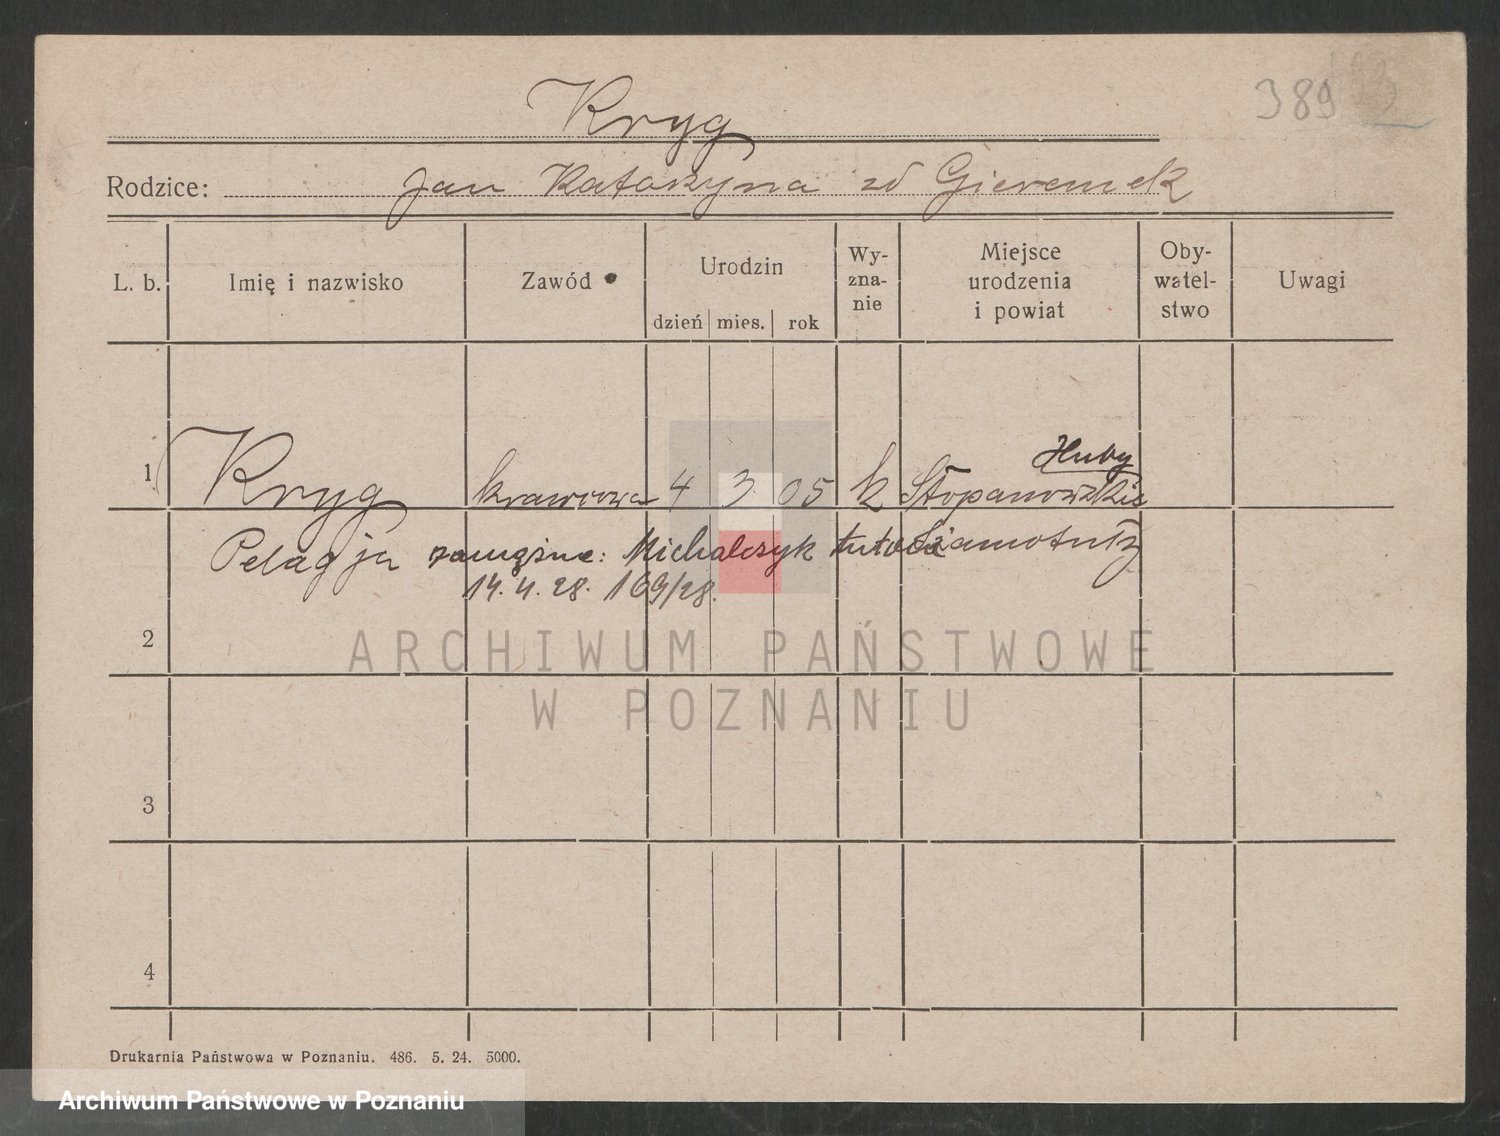 389
Kryg
Rodzice: Jan Katarzyna zd Gieremek
L. b.
Imię i nazwisko
Zawód
Urodzin
dzień mies. rok
Wy-
zna-
nie
Miejsce
urodzenia
i powiat
Oby-
watel-
stwo
Uwagi
Huby
1 Kryg krawcowa 4 3 05 k Stopanowskie
Pelagja zamężna: Michalczyk Szamotuły
14.4.28. 169/28.
2
ARCHIWUM PAŃSTWOWE
W POZNANIU
3
4
Drukarnia Państwowa w Poznaniu. 486. 5. 24. 5000.
Archiwum Państwowe w Poznaniu